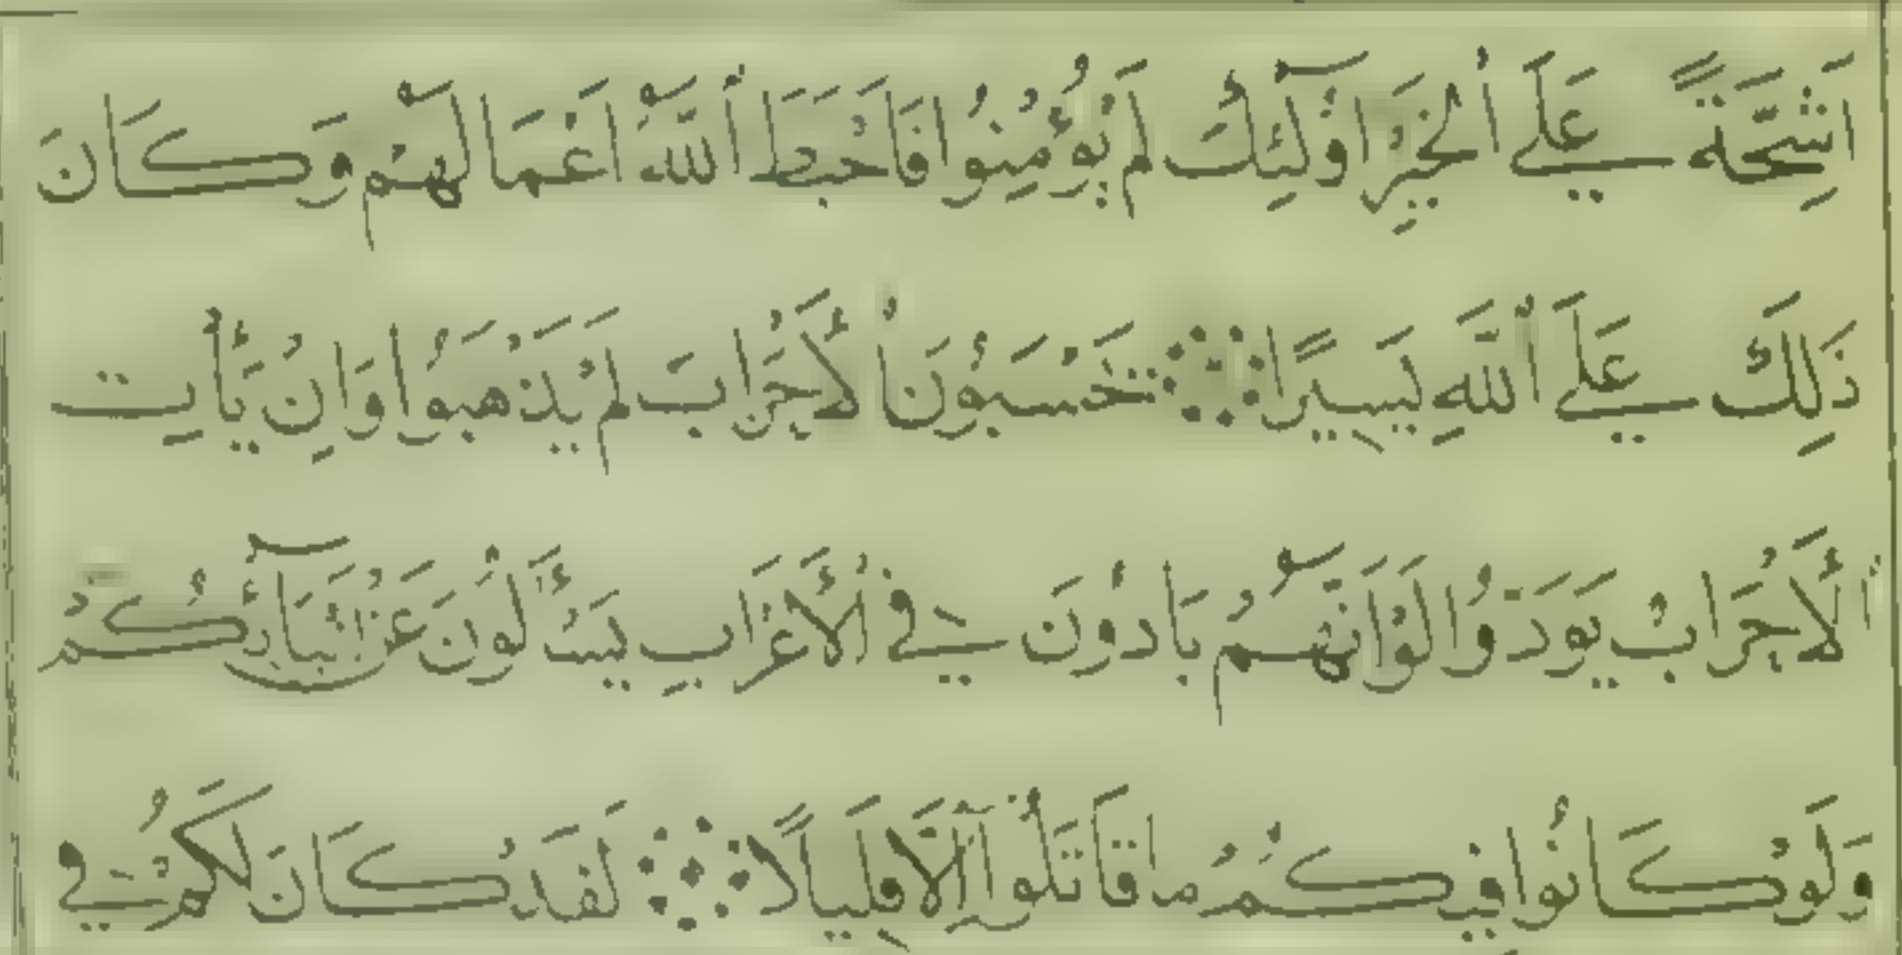 اَشِحَّةً عَلَى ٱلْخَيْرِ اُولَٰٓئِكَ لَمْ يُؤْمِنُوا فَاَحْبَطَ ٱللَّهُ اَعْمَالَهُمْ وَكَانَ
ذَلِكَ عَلَى ٱللَّهِ يَسِيرًا يَحْسَبُونَ ٱلْأَحْزَابَ لَمْ يَذْهَبُوا وَاِنْ يَأْتِ
ٱلْأَحْزَابُ يَوَدُّوا لَوْ اَنَّهُمْ بَادُونَ فِي ٱلْأَعْرَابِ يَسْـَٔلُونَ عَنْ اَنْبَآئِكُمْ
وَلَوْ كَانُوا فِيكُمْ مَا قَاتَلُوٓا اِلَّا قَلِيلًا لَقَدْ كَانَ لَكُمْ فِي